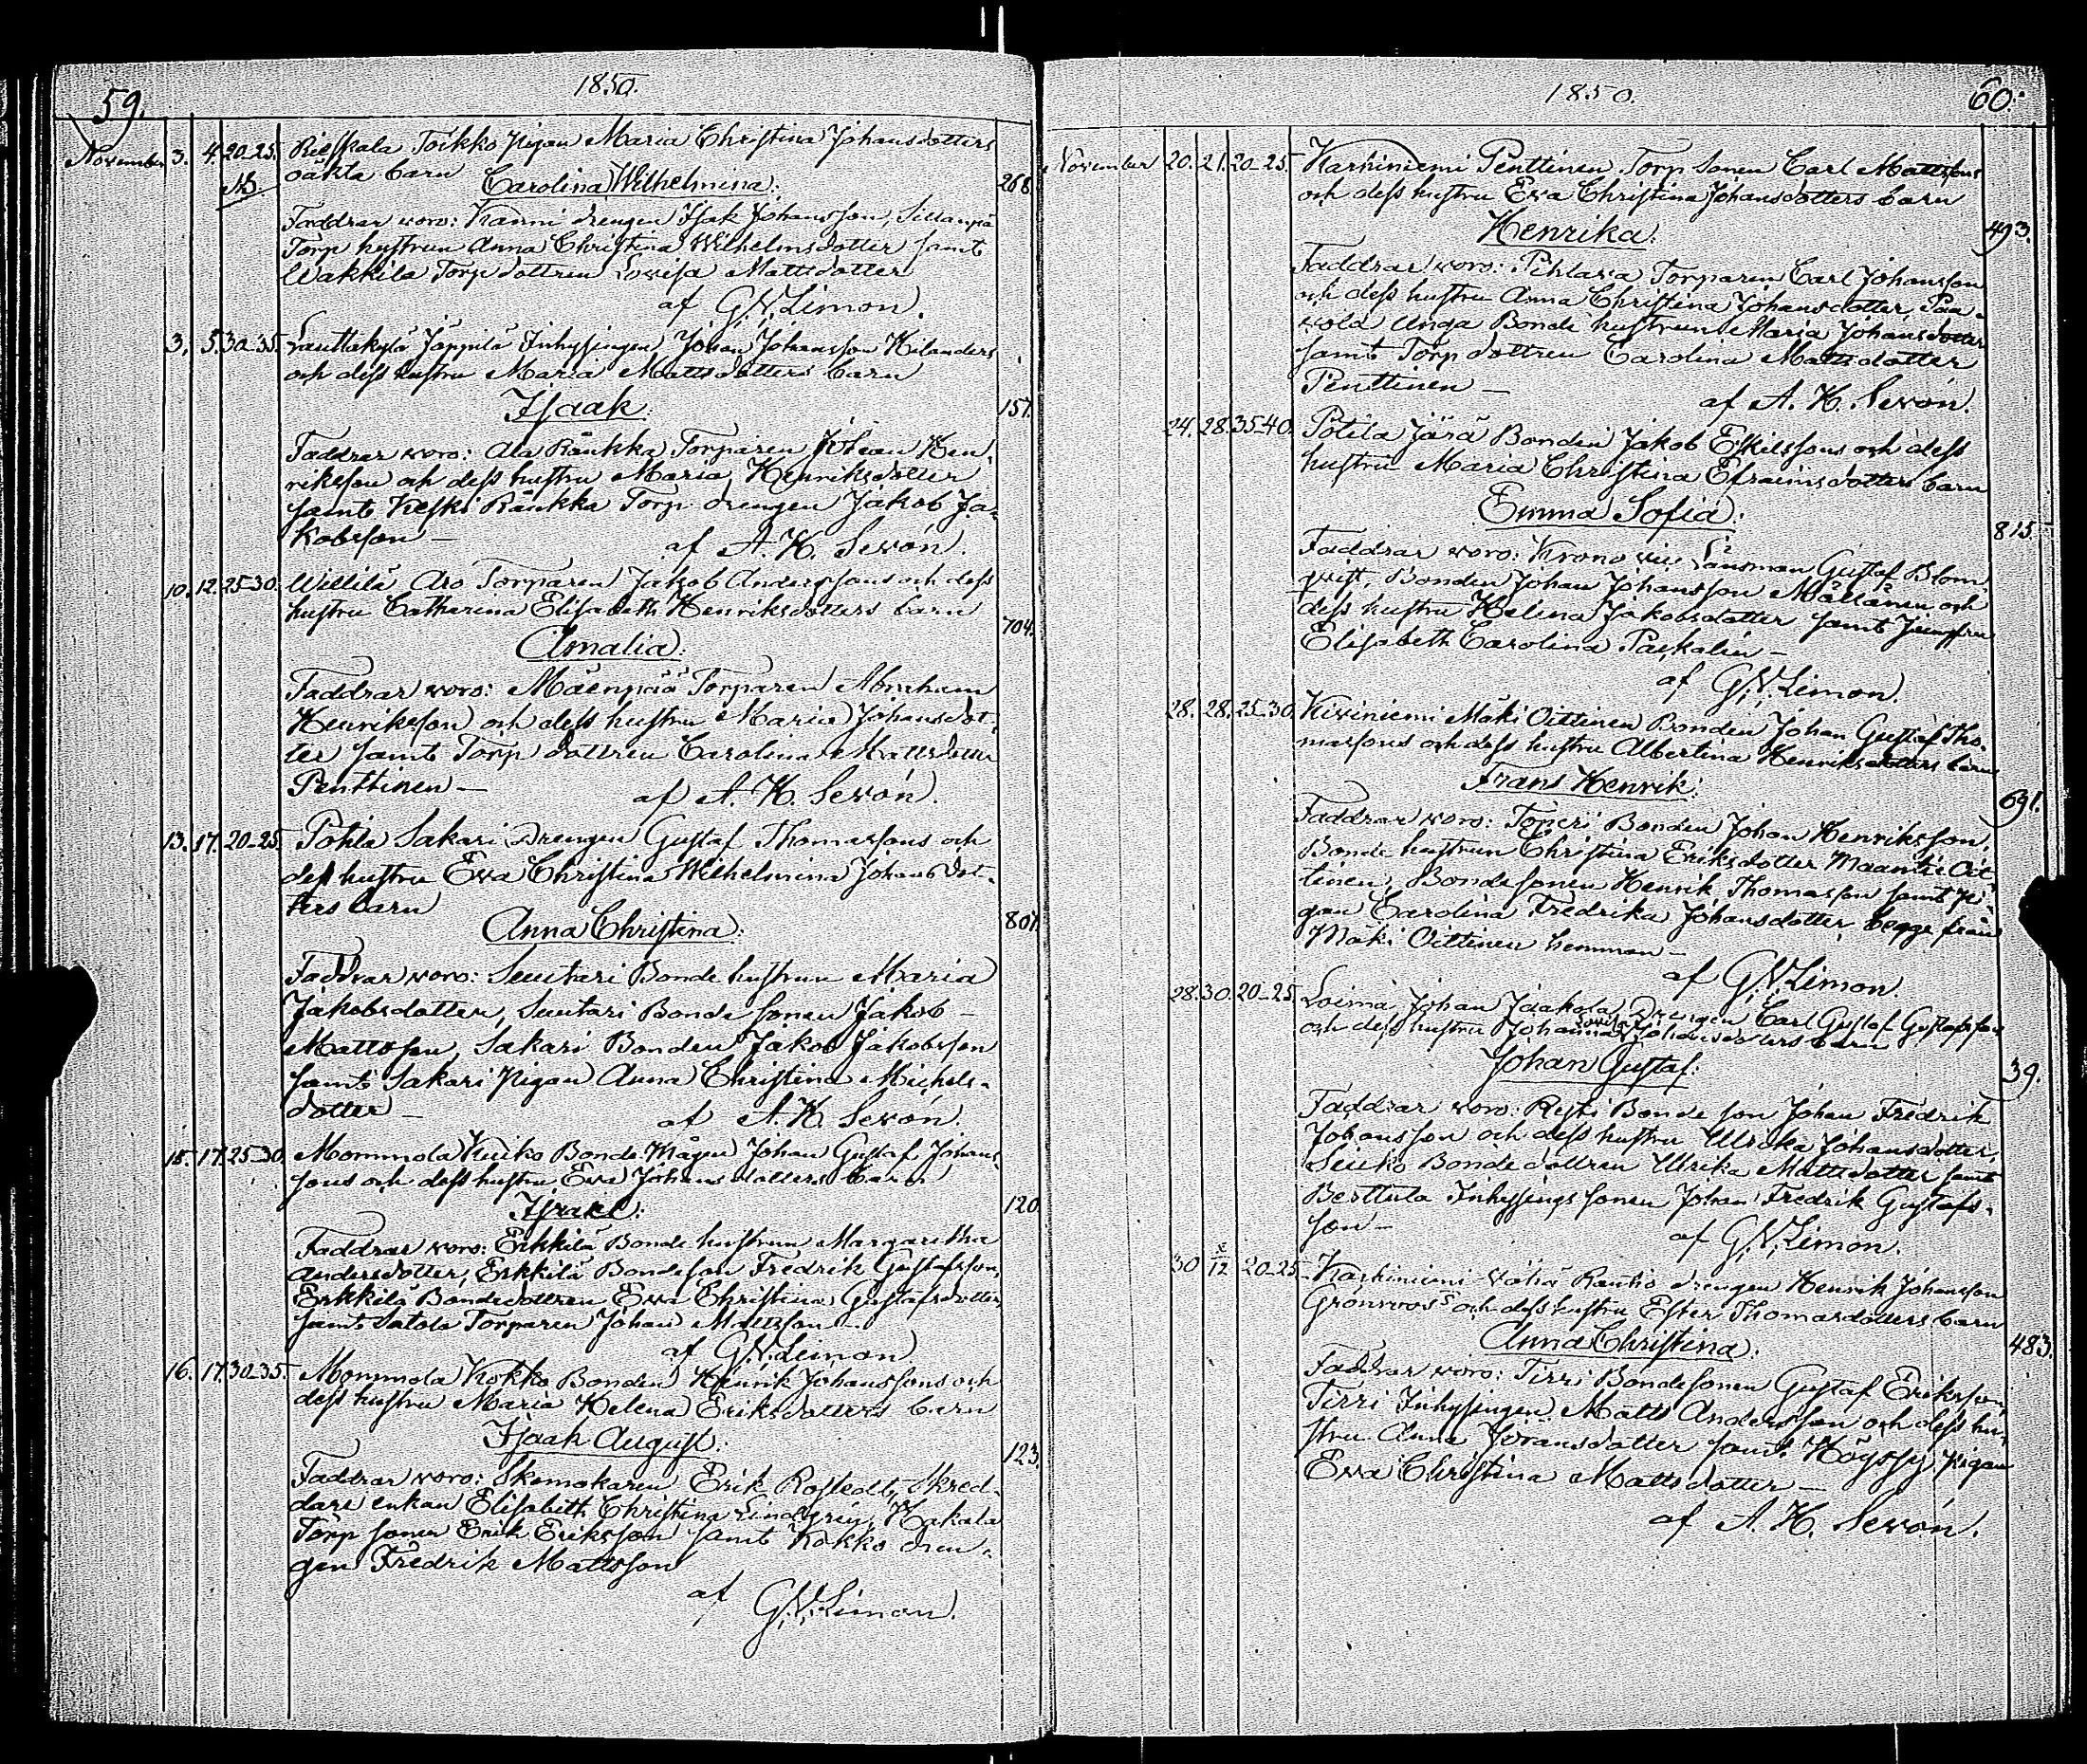 59.
1850.
November 3. 4. 20-25. Rieskala Toikko Pigan Maria Christina Johansdotters
NB. oäkta barn
Carolina Wilhelmina. 268
Faddrar woro: Kanni drengen Isak Johansson, Sillanpä
Torp hustrun Anna Christina Wilhelmsdotter samt
Wakkila Torp dottren Lovisa Mattsdotter
af G. W. Limon.
3. 5. 30-35. Lauttakylä Jäppilä Inhysingen Johan Johansson Kilanders
och dess hustru Maria Mattsdotters barn
Isaak. 157.
Faddrar woro: Ala Räukka Torparen Johan Hen-
riksson och dess hustru Maria Henriksdotter
samt Keski Räukka Torp drengen Jakob Ja-
kobsson —
af A. H. Sevón.
10. 12. 25-30. Willilä Aro Torparen Jakob Anderssons och dess
hustru Catharina Elisabeth Henriksdotters barn
Amalia. 704.
Faddrar woro: Mäenpää Torparen Abraham
Henriksson och dess hustru Maria Johansdot-
ter samt Torp dottren Carolina Mattsdotter
Penttinen —
af A. H. Sevón.
13. 17. 20-25. Pohla Sakari Drengen Gustaf Thomassons och
dess hustru Eva Christina Wilhelmina Johansdot-
ters barn
Anna Christina. 807.
Faddrar woro: Suutari Bonde hustrun Maria
Jakobsdotter, Suutari Bonde sonen Jakob
Mattsson, Sakari Bonden Jakob Jakobsson
samt Sakari Pigan Anna Christina Michels-
dotter —
af A. H. Sevón.
15. 17. 25-30. Mommola Kuiko Bonde Mågen Johan Gustaf Johans-
sons och dess hustru Eva Johansdotters barn
Israel. 120.
Faddrar woro: Erkkilä Bonde hustrun Margaretha
Andersdotter, Erkkilä Bondeson Fredrik Gustafsson,
Erkkilä Bondedottren Eva Christina Gustafsdotter
samt Satola Torparen Johan Mattsson —
af G. W. Limon
16. 17. 30-35. Mommola Kokko Bonden Henrik Johanssons och
dess hustru Maria Helena Eriksdotters barn
Isaak August. 123.
Faddrar woro: Skomakaren Erik Rostedt, Skred-
dare enkan Elisabeth Christina Lindgren, Hakala
Torp sonen Erik Eriksson samt Kokko dren-
gen Fredrik Mattsson
af G. W. Limon.
1850.
60.
November 20. 21. 20-25. Karhiniemi Penttinen Torp Sonen Carl Mattssons
och dess hustru Eva Christina Johansdotters barn
Henrika. 493.
Faddrar woro: Pihlava Torparen Carl Johansson
och dess hustru Anna Christina Johansdotter, Paa-
vola Unga Bonde hustrun Maria Johansdotter
samt Torp dottren Carolina Mattsdotter
Penttinen —
af A. H. Sevón.
24. 28. 35-40. Potila Järä Bonden Jakob Eskilssons och dess
hustru Maria Christina Efraimsdotters barn
Emma Sofia. 815.
Faddrar woro: Krono vice Länsman Gustaf Blom-
qvist, Bonden Johan Johansson Mällänen och
dess hustru Helena Jakobsdotter samt Jungfru
Elisabeth Carolina Paskalin —
af G. W. Limon.
28. 28. 25-30. Kiviniemi Mäki Oittinen Bonden Johan Gustaf Tho-
massons och dess hustru Albertina Henriksdotters barn
Frans Henrik. 691.
Faddrar woro: Toperi Bonden Johan Henriksson,
Bonde hustrun Christina Eriksdotter Maantie Oit
tinen, Bondesonen Henrik Thomasson samt Pi-
gan Carolina Fredrika Johansdotter begge från
Mäki Oittinen hemman —
af G. W. Limon.
28. 30. 20-25. Loima Johan Jaakola Drengen Carl Gustaf Gustafsson
och dess hustru Johanna Lovisa Johansdotters barn
Johan Gustaf. 39.
Faddrar woro: Rysti Bonde son Johan Fredrik
Johansson och dess hustru Ulrika Johansdotter,
Seuko Bonde dottren Ulrika Mattsdotter samt
Berttula Inhysings sonen Johan Fredrik Gustafs-
son —
af G. W. Limon.
30 x/12 20-25. Karhiniemi Vähä Rautio drengen Henrik Johansson
Grönroos's och dess hustru Ester Thomasdotters barn
Anna Christina. 483.
Faddrar woro: Tirri Bondesonen Gustaf Eriksson,
Tirri Inhysingen Matts Andersson och dess hu-
stru Anna Göransdotter samt Höyssy Pigan
Eva Christina Mattsdotter —
af A. H. Sevón.